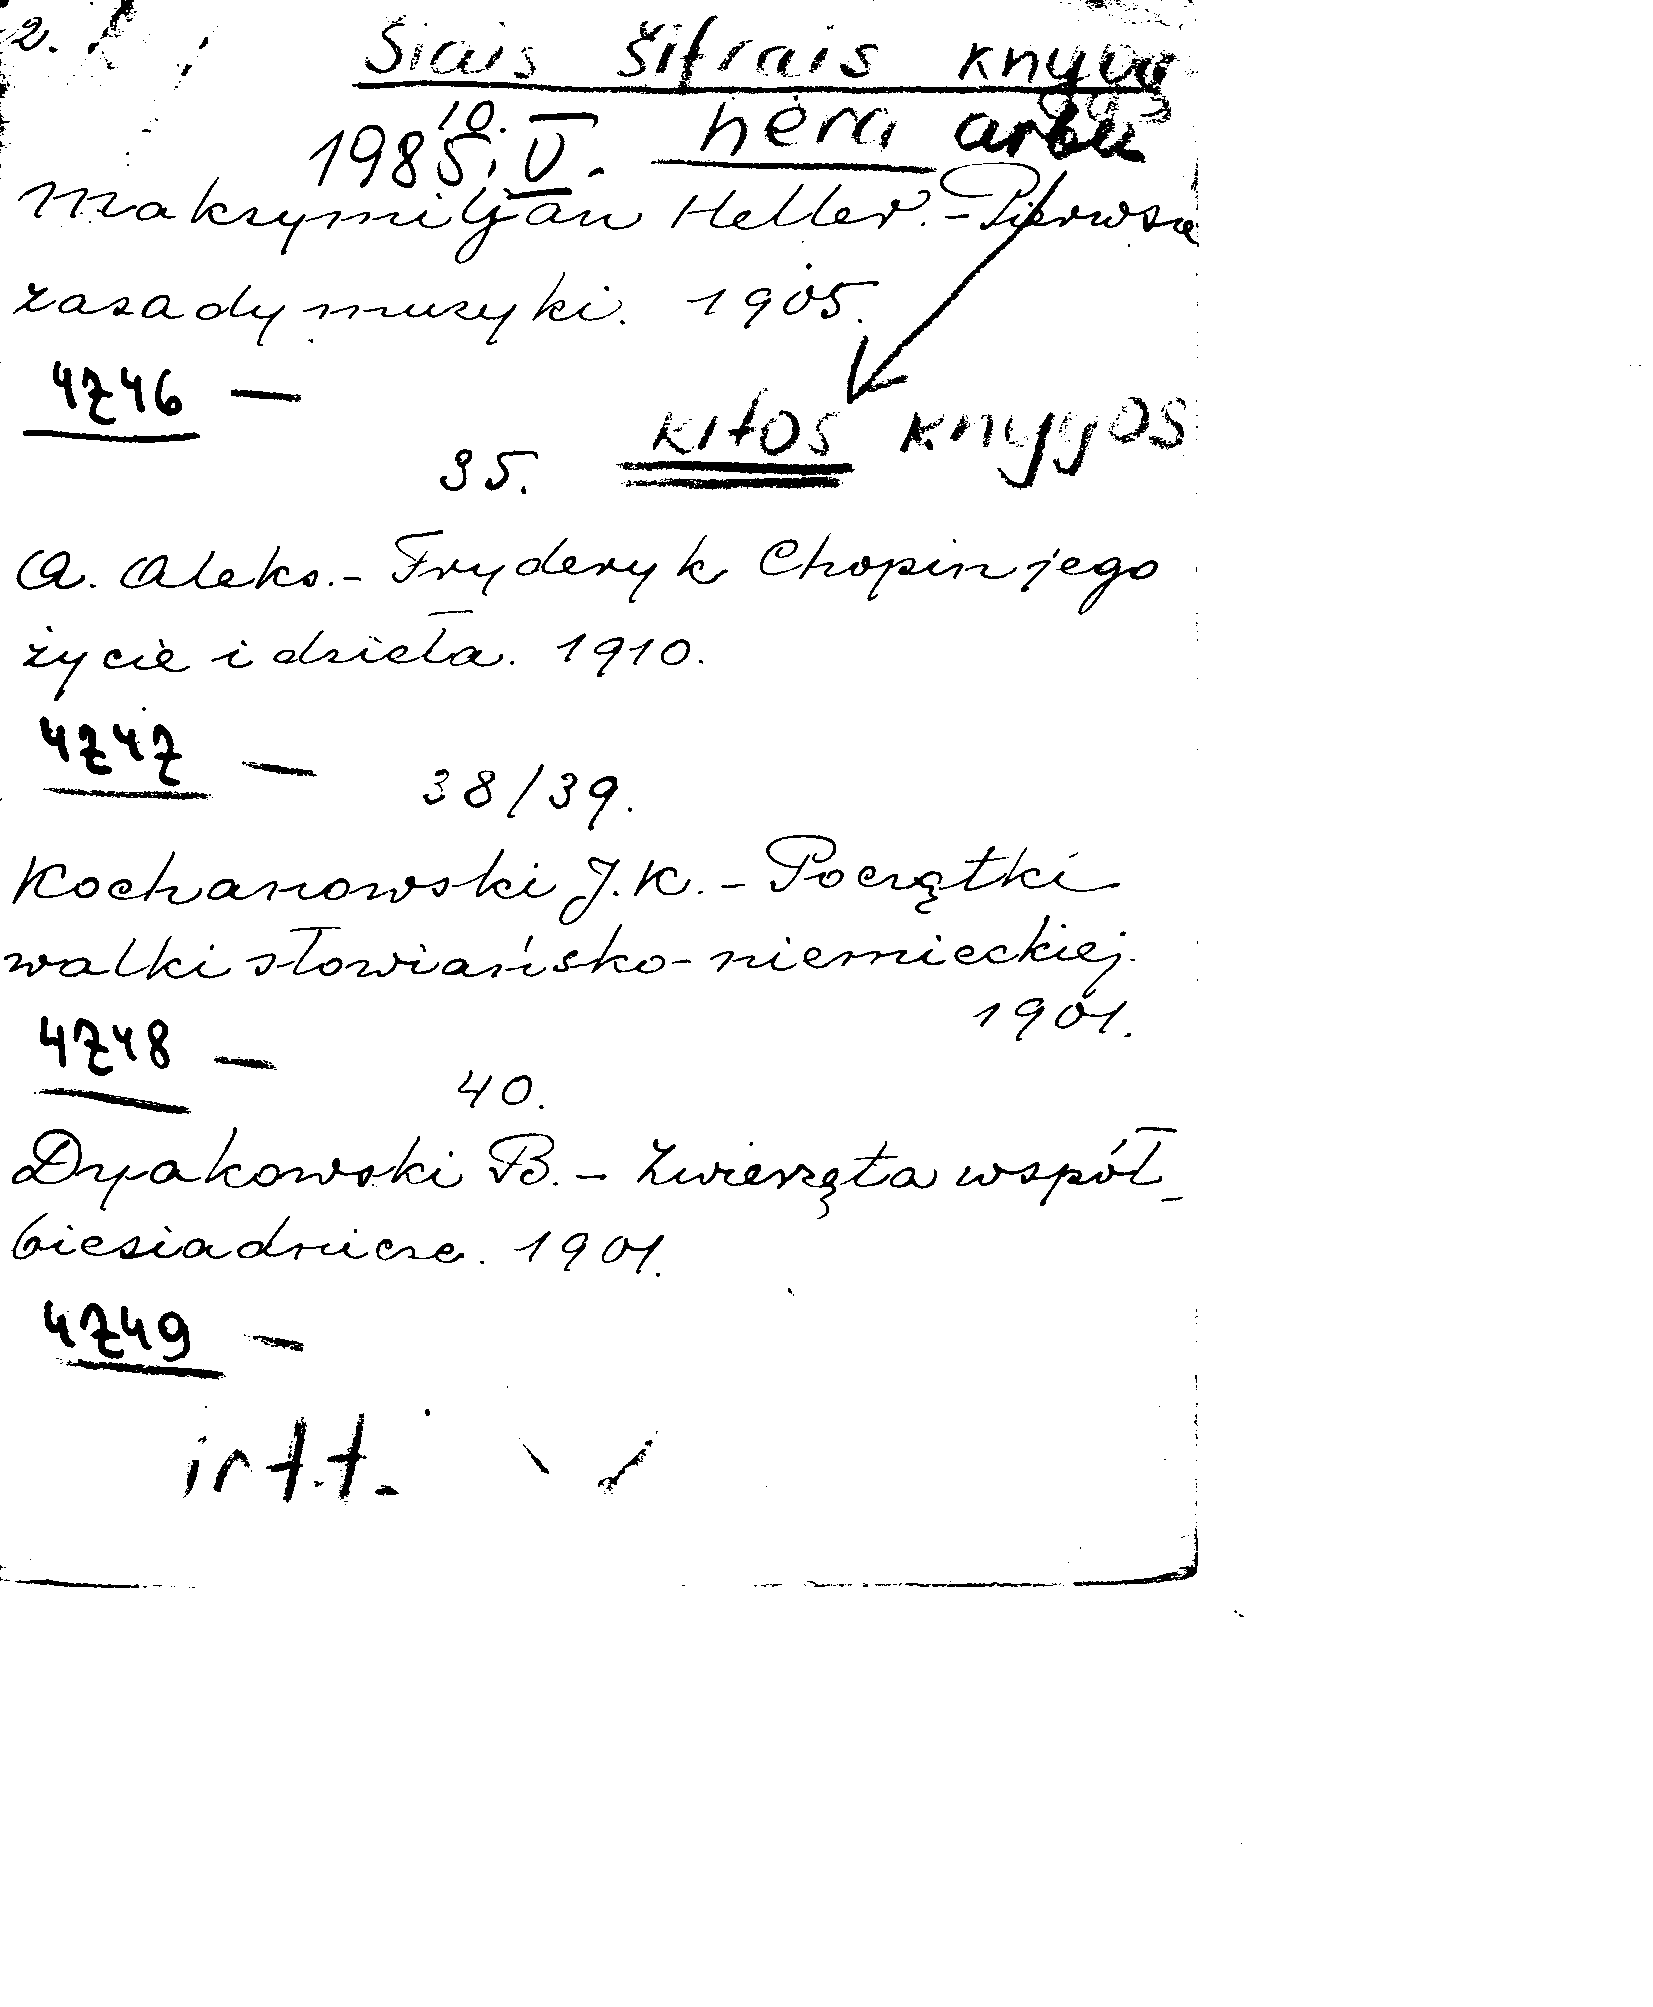 2.
Šiais šifrais knygų
1985.10.V. nėra arba
Maksymiljan Heller. - Pierwsze
zasady muzyki. 1905.
4746 —
kitos knygos
35.
A. Aleks. - Fryderyk Chopin jego
życie i dzieła. 1910.
4747 —
38/39.
Kochanowski J. K. - Początki
walki słowiańsko-niemieckiej.
1901.
4748 —
40.
Dyakowski B. - Zwierzęta współ-
biesiadnicze. 1901.
4749 —
ir t.t.